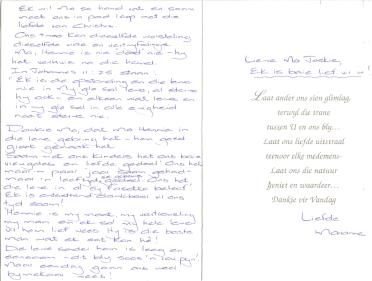 Ek wil Ma se hand vat en saam
met ons in pad loop met die
liefde van Christus.
Ons twee kan dieselfde worsteling
dieselfde
Ma, Hennie is nie dood nie - hy
het verhuis na die hemel.
In Johannes 11:25 staan:
"Ek is die opstanding en die lewe
wie in My glo sal lewe, al sterwe
hy ook - en elkeen wat lewe en
in my glo sal in alle ewigheid
nooit sterwe nie.
Dankie Ma, dat Ma Hennie in
die lewe gebring het - hom goed
groot gemaak het.
Saam met ons kinders het ons baie
vreugdes en liefde gedeel. Ons het
maar 'n paar jaar saam gehad -
maar 'n leeftyd se
die lewe in al sy beleef!
Ek is dankbaar vir ons
tyd saam!
Hennie is my maat, my
my man en ek sal vir hom
lief hê. Hy is die beste
man wat ek kan hê!
Die lewe sonder hom is leeg en
eensaam - dit bly soos 'n rou pyn!
Maar eendag gaan ons weer
bymekaar wees!
Liewe Ma Jackie,
Ek is baie lief vir u!
Laat ander ons sien glimlag,
terwyl die trane
tussen U en ons bly...
Laat ons liefde uitstraal
teenoor elke medemens-
Laat ons die natuur
geniet en waardeer...
Dankie vir Vandag
Liefde
Marianne